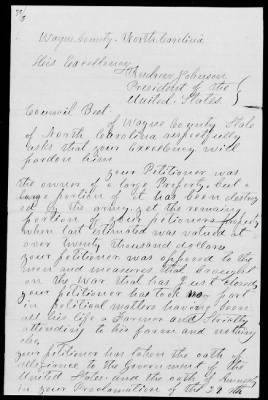 Wayne County. North Carolina
His Excellency
Andrew Johnson
President of the
United States
Council Best
of Wayne County State
of North Carolina respectfully
asks that your Excelency will
pardon him
your Petitioner was
the owner of a large Property. but a
large portion of it has been destroy
ed by the army yet the remaining
portion of your petioners Property
when last estimated was valued at
over twenty thousand dollars
your petitioner was opposed to the
men and measures that brought
on the War that has just closed
your petitioner has took no part
in political matters having been
all his life a Farmer and strictly
attending to his farm and nothing
else
your petitioner has taken the oath of
allegiance to the Government of the
United States and the oath of Amnesty
in your Proclamation of the 29th